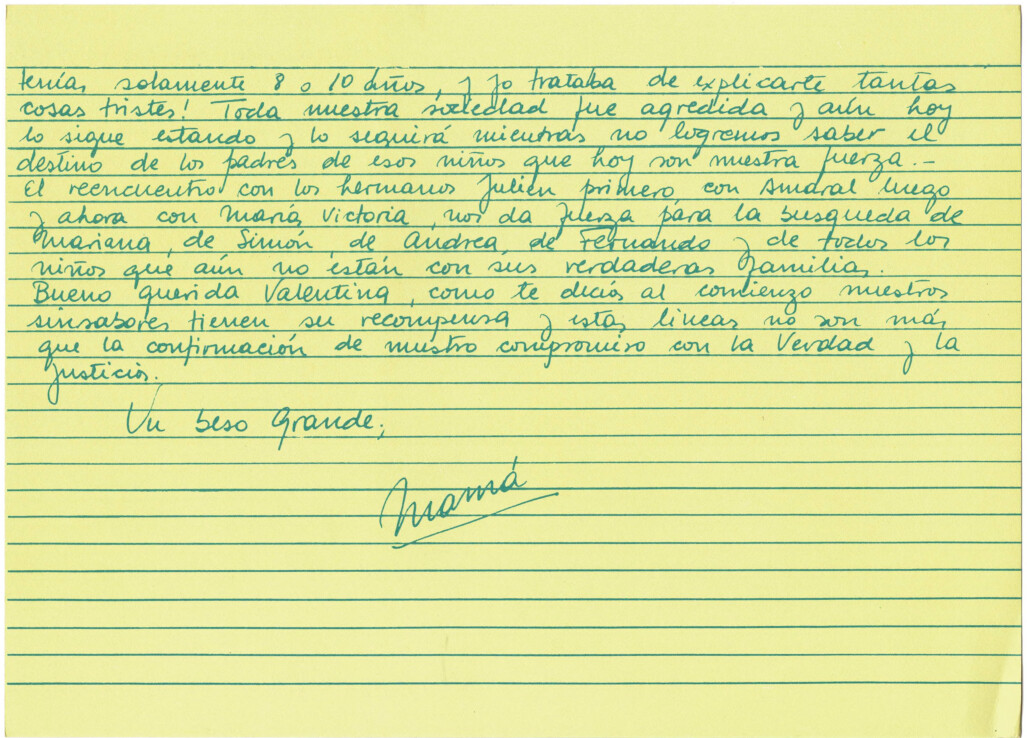 tenías solamente 8 o 10 años, y yo trataba de explicarte tantas
cosas tristes! Toda nuestra sociedad fue agredida y aún hoy
lo sigue estando y lo seguirá mientras no logremos saber el
destino de los padres de esos niños que hoy son nuestra fuerza.-
El reencuentro con los hermanos Julien primero con Amaral luego
y ahora con María Victoria, nos da fuerza para la busqueda de
Mariana, de Simón, de Andrea, de Fernando y de todos los
niños que aún no están con sus verdaderas familias.
Bueno querida Valentina, como te decía al comienzo nuestros
sinsabores tienen su recompensa y estas lineas no son más
que la confirmación de nuestro compromiso con la Verdad y la
Justicia.
Un beso grande,
Mamá